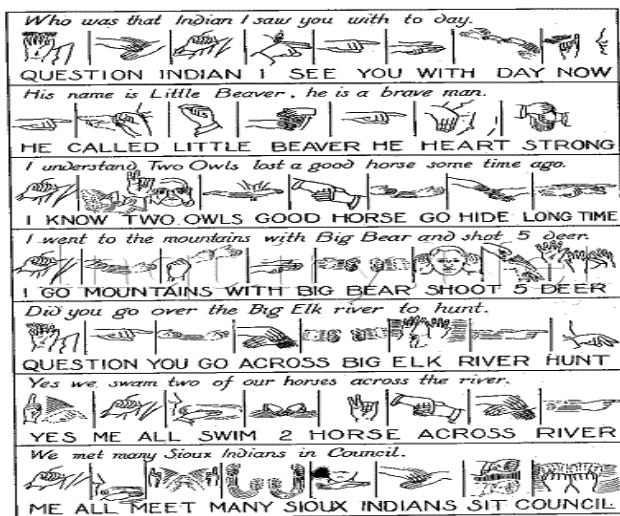 Who was that Indian I saw you with to day.
QUESTION INDIAN I SEE YOU WITH DAY NOW
His name is Little Beaver, he is a brave man.
HE CALLED LITTLE BEAVER HE HEART STRONG
I understand Two Owls lost a good horse some time ago.
I KNOW TWO OWLS GOOD HORSE GO HIDE LONG TIME
I went to the mountains with Big Bear and shot 5 deer.
I GO MOUNTAINS WITH BIG BEAR SHOOT 5 DEER
Did you go over the Big Elk river to hunt.
QUESTION YOU GO ACROSS BIG ELK RIVER HUNT
Yes we swam two of our horses across the river.
YES ME ALL SWIM 2 HORSE ACROSS RIVER
We met many Sioux Indians in Council.
ME ALL MEET MANY SIOUX INDIANS SIT COUNCIL